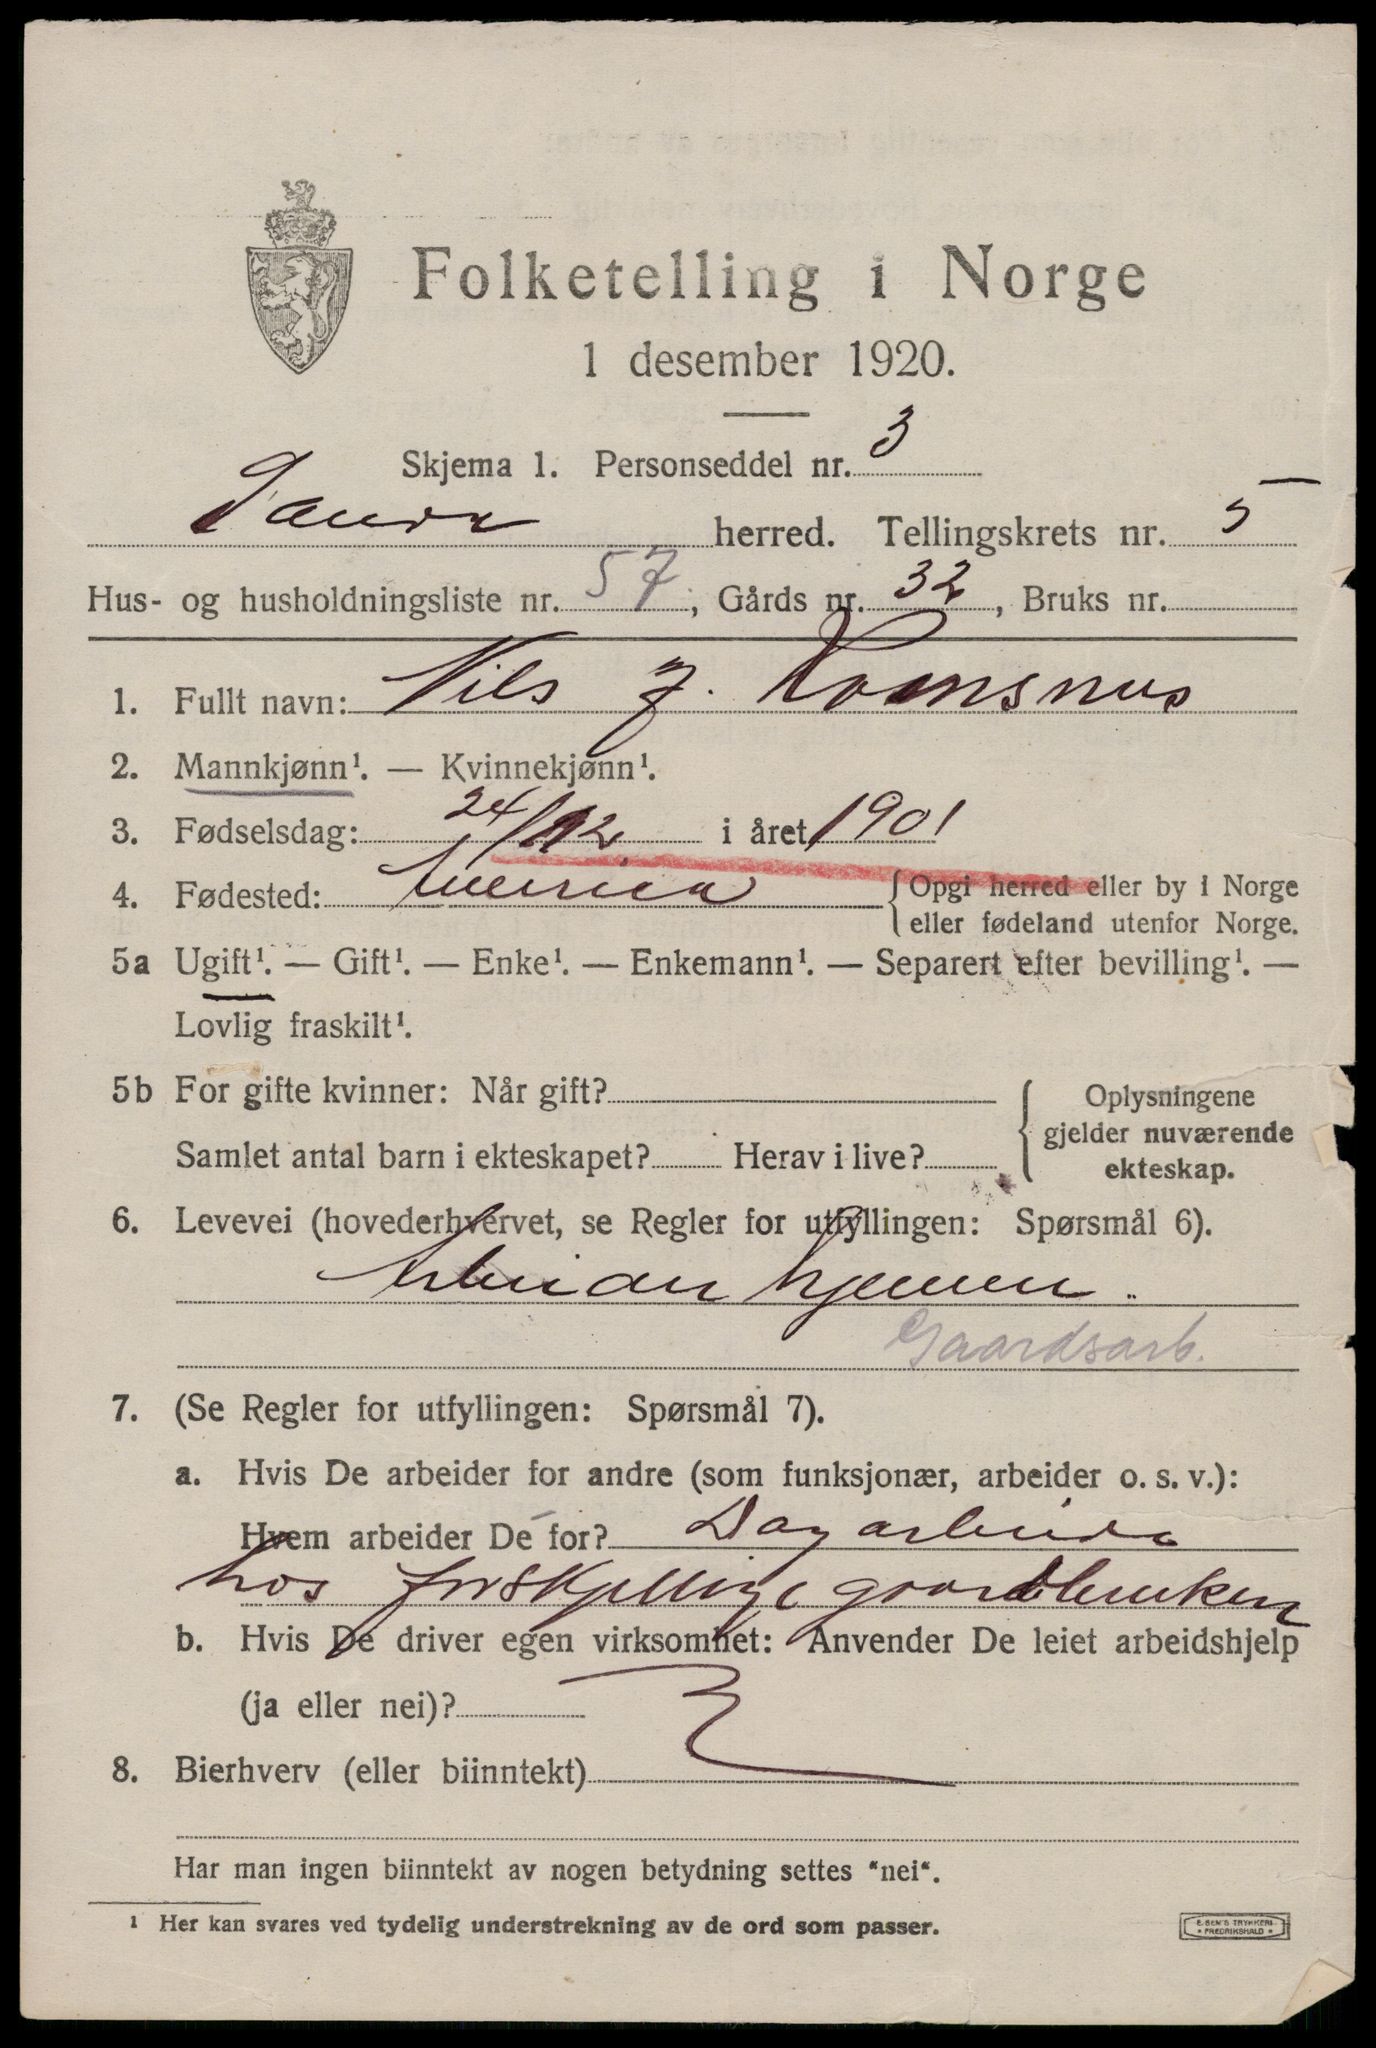 Folketelling i Norge
1 desember 1920.
Skjema 1. Personseddel nr. 3
herred. Tellingskrets nr. 5
Hus- og husholdningsliste nr. 57, Gårds nr. 32, Bruks nr.
1. Fullt navn: Nils J.
2. Mannkjønn¹. — Kvinnekjønn¹.
3. Fødselsdag: 24/12 i året 1901
4. Fødested: America {Opgi herred eller by i Norge
eller fødeland utenfor Norge.
5a Ugift¹. — Gift¹. — Enke¹. — Enkemann¹. — Separert efter bevilling¹. —
Lovlig fraskilt¹.
5b For gifte kvinner: Når gift?
Samlet antal barn i ekteskapet? Herav i live?
{Oplysningene
gjelder nuværende
ekteskap.
6. Levevei (hovederhvervet, se Regler for utfyllingen: Spørsmål 6).
hjemme.
Gaardsarb.
7. (Se Regler for utfyllingen: Spørsmål 7).
a. Hvis De arbeider for andre (som funksjonær, arbeider o. s. v.):
Hvem arbeider De for? Dagarbeide
hos forskjellige gaardbruker
b. Hvis De driver egen virksomhet: Anvender De leiet arbeidshjelp
(ja eller nei)?
8. Bierhverv (eller biinntekt)
Har man ingen biinntekt av nogen betydning settes "nei".
¹ Her kan svares ved tydelig understrekning av de ord som passer.
E. SEM'S TRYKKERI
• FREDRIKSHALD •